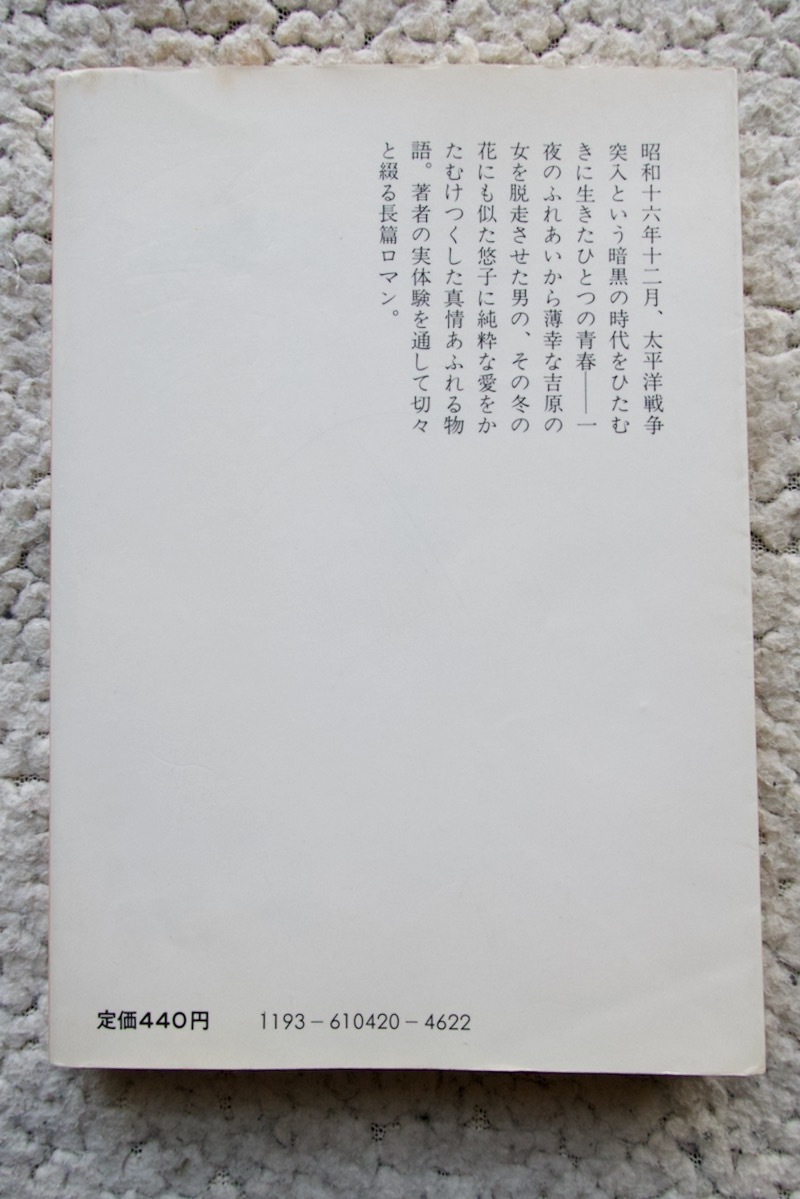 昭和十六年十二月、太平洋戦争
突入という暗黒の時代をひたむ
きに生きたひとつの青春――一
夜のふれあいから薄幸な吉原の
女を脱走させた男の、その冬の
花にも似た悠子に純粋な愛をか
たむけつくした真情あふれる物
語。著者の実体験を通して切々
と綴る長篇ロマン。
定価440円 1193-610420-4622